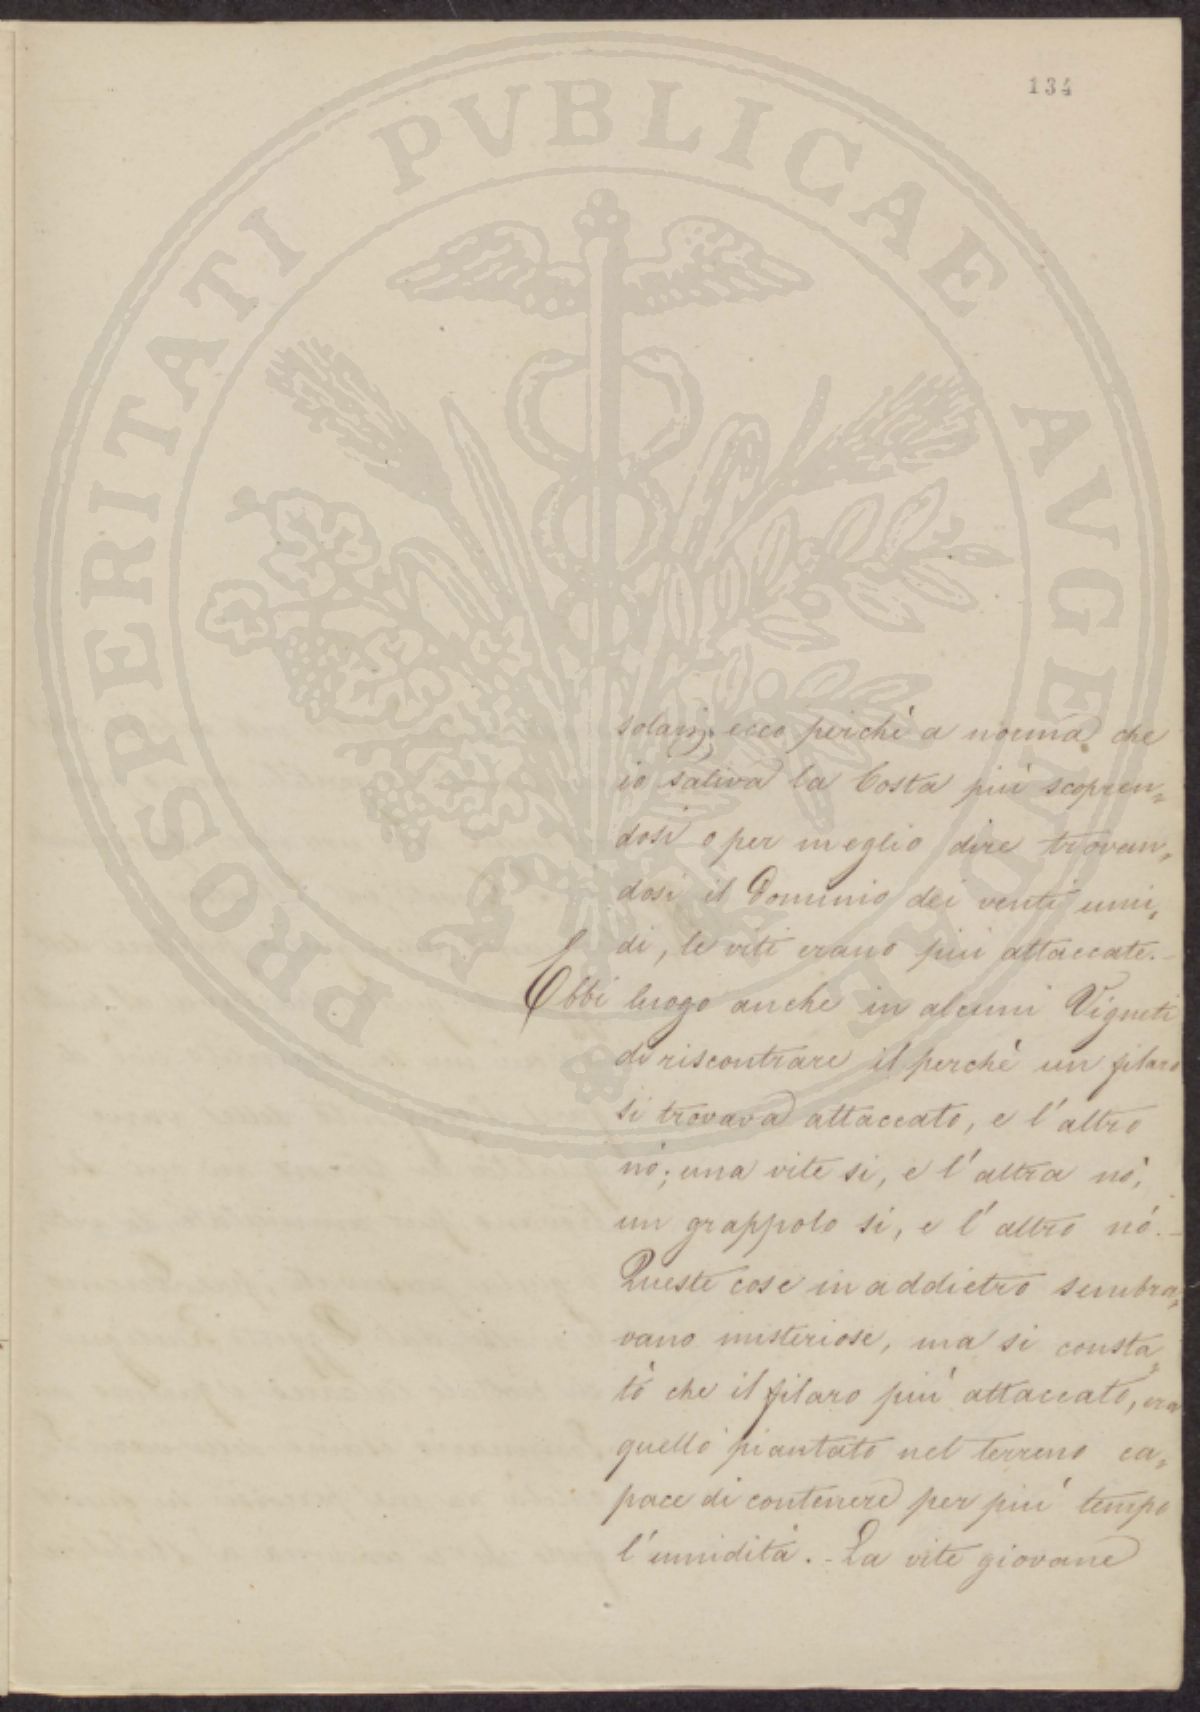 134
PROSPERITATI PVBLICAE AVGENDAE
solari; ecco perchè a norma che
io saliva la Costa più scopren„
dosi o per meglio dire trovan„
dosi il Dominio dei venti umi„
di, le viti erano più attaccate.-
Ebbi luogo anche in alcuni Vigneti
di riscontrare il perchè un filaro
si trovava attaccato, e l'altro
nò; una vite si, e l'altra nò,
un grappolo si, e l'altro nò.-
Queste cose in addietro sembra„
vano misteriose, ma si consta„
tò che il filaro più attaccato, era
quello piantato nel terreno ca„
pace di contenere per più tempo
l'umidità.- La vite giovane